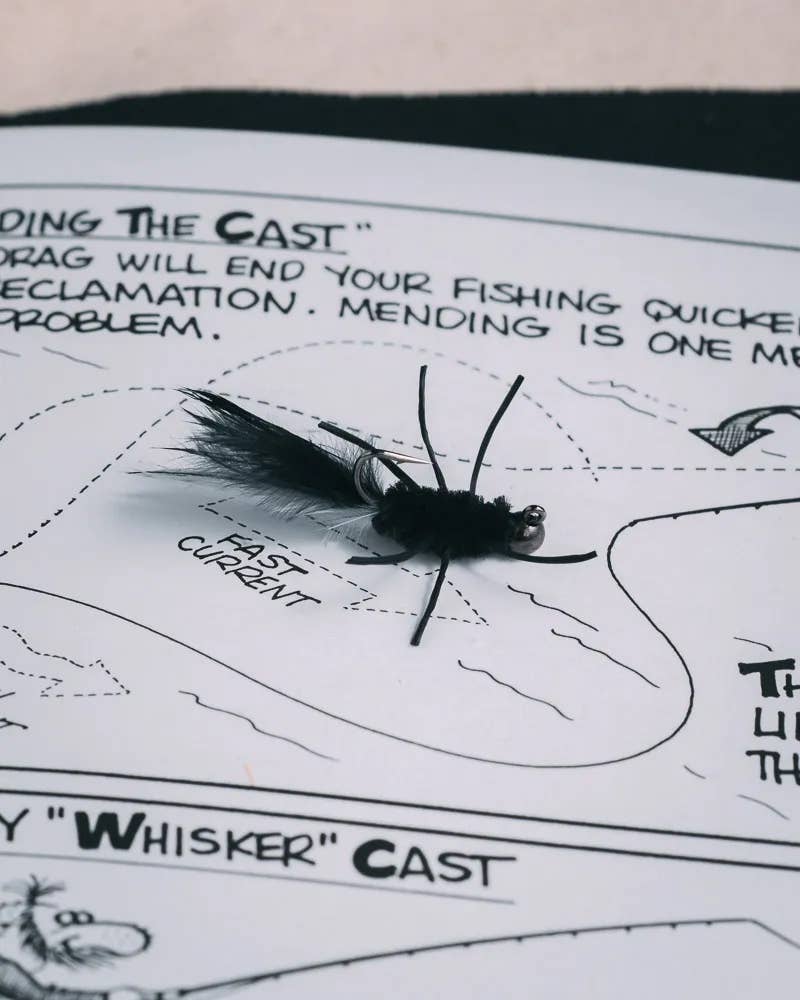 DING THE CAST"
DRAG WILL END YOUR FISHING
ECLAMATION. MENDING IS ONE
PROBLEM.
FAST
CURRENT
Y "WHISKER" CAST